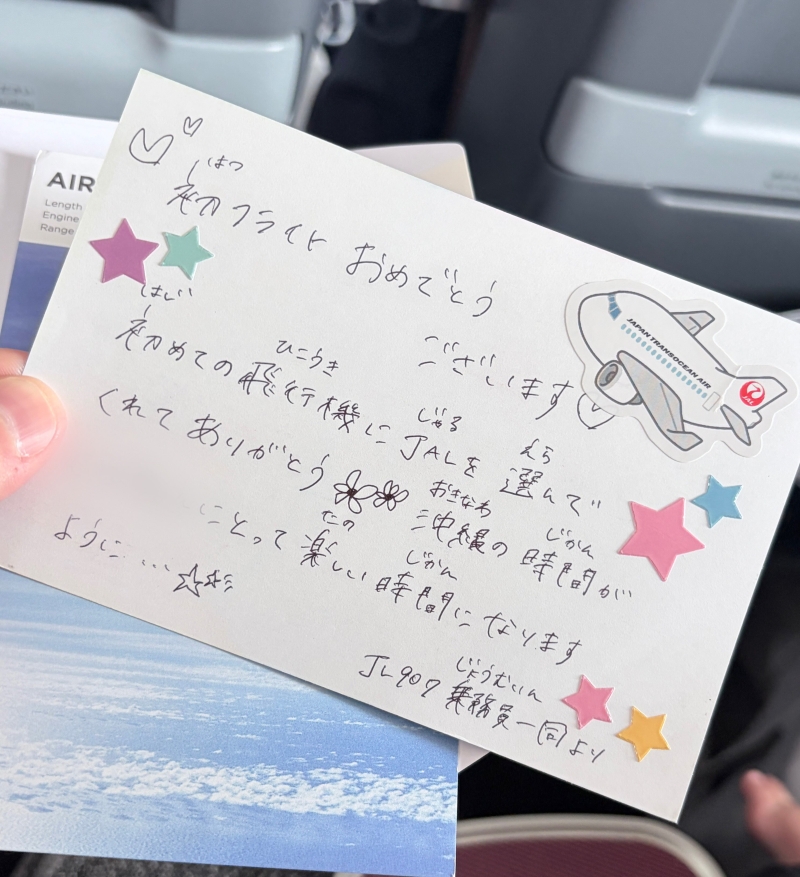 AIR
Length
Engine
Range
はつ
初フライト おめでとう
ございます♡
はじ ひこうき じゃる えら
初めての飛行機にJALを選んで
くれてありがとう
おきなわ じかん
沖縄の時間が
たの じかん
にとって楽しい時間になります
ように....☆
じょうむいん
JL907 乗務員一同より
JAPAN TRANSOCEAN AIR
JAL